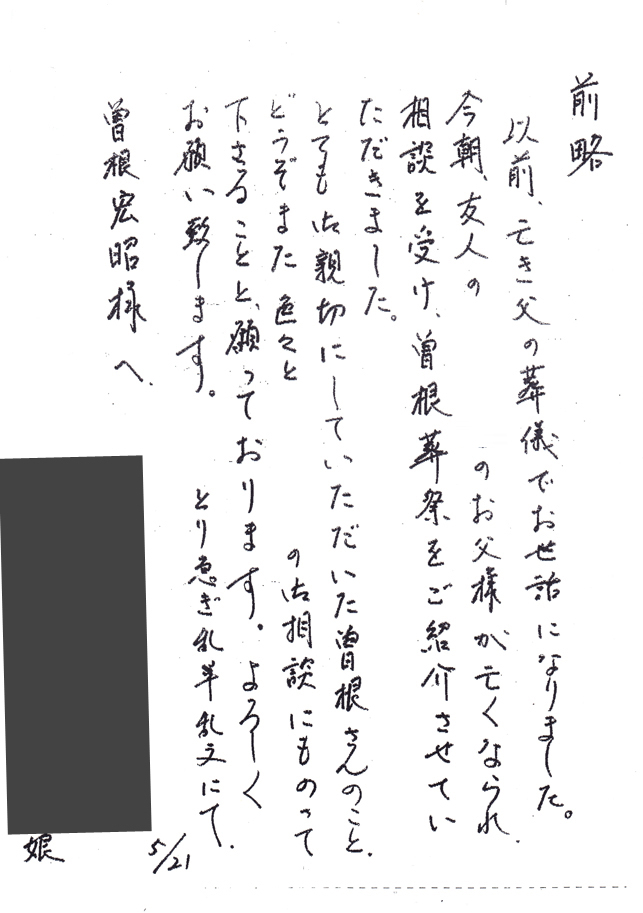 前略
以前、亡き父の葬儀でお世話になりました。
今朝、友人の のお父様が亡くなられ、
相談を受け、曽根葬祭をご紹介させてい
ただきました。
とても御親切にしていただいた曽根さんのこと、
どうぞまた色々と の御相談にものって
下さることと、願っております。よろしく
お願い致します。
とり急ぎ乱筆乱文にて、
5/21
曽根宏昭様へ、
娘